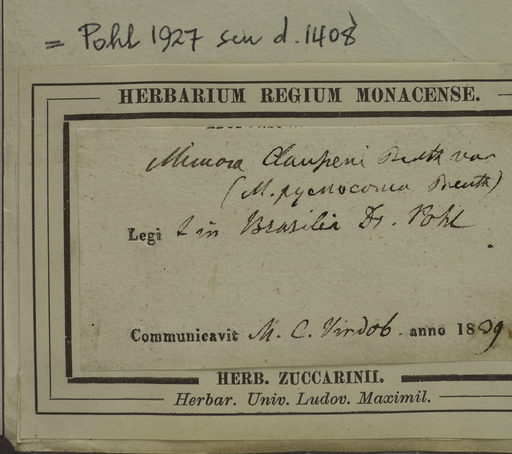 = Pohl 1927 seu d. 1408
HERBARIUM REGIUM MONACENSE.
Mimosa Clausseni Benth var
(M. pycnocoma Benth)
Legit in Brasilia Dr. Pohl
Communicavit M. C. Vindob. anno 1839
HERB. ZUCCARINII.
Herbar. Univ. Ludov. Maximil.